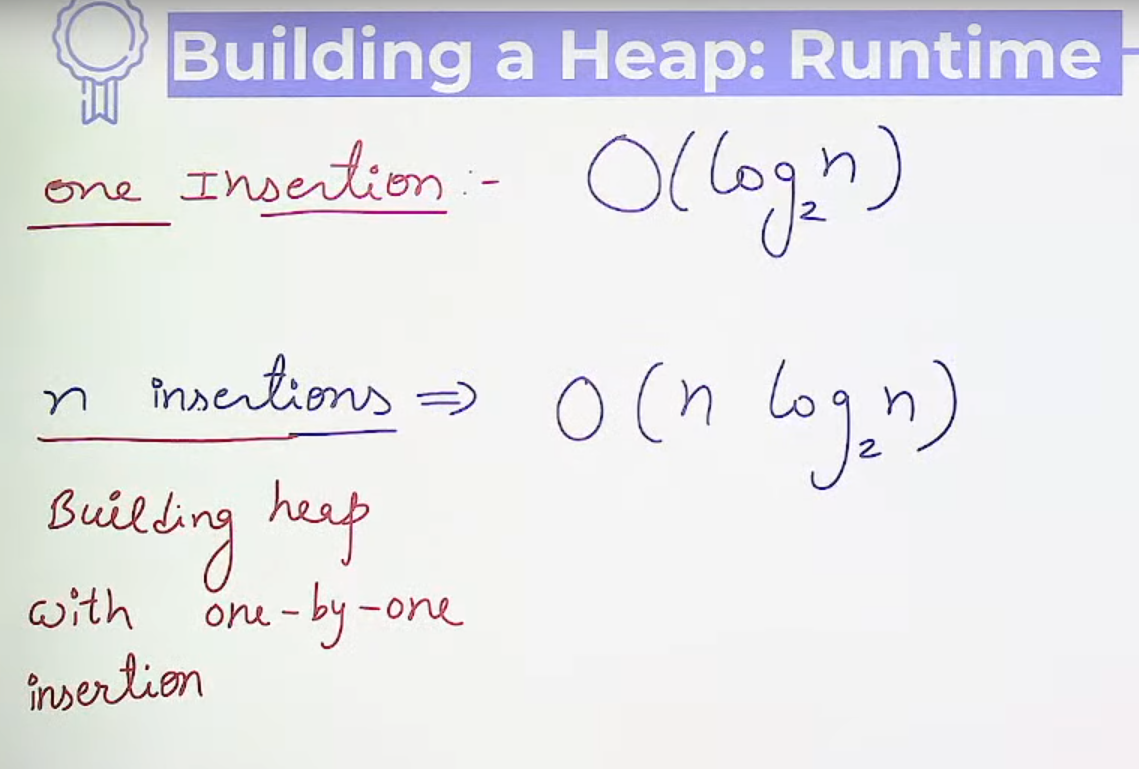 Building a Heap: Runtime
one Insertion :- O(log₂n)
n insertions ⇒ O(n log₂n)
Building heap
with one-by-one
insertion